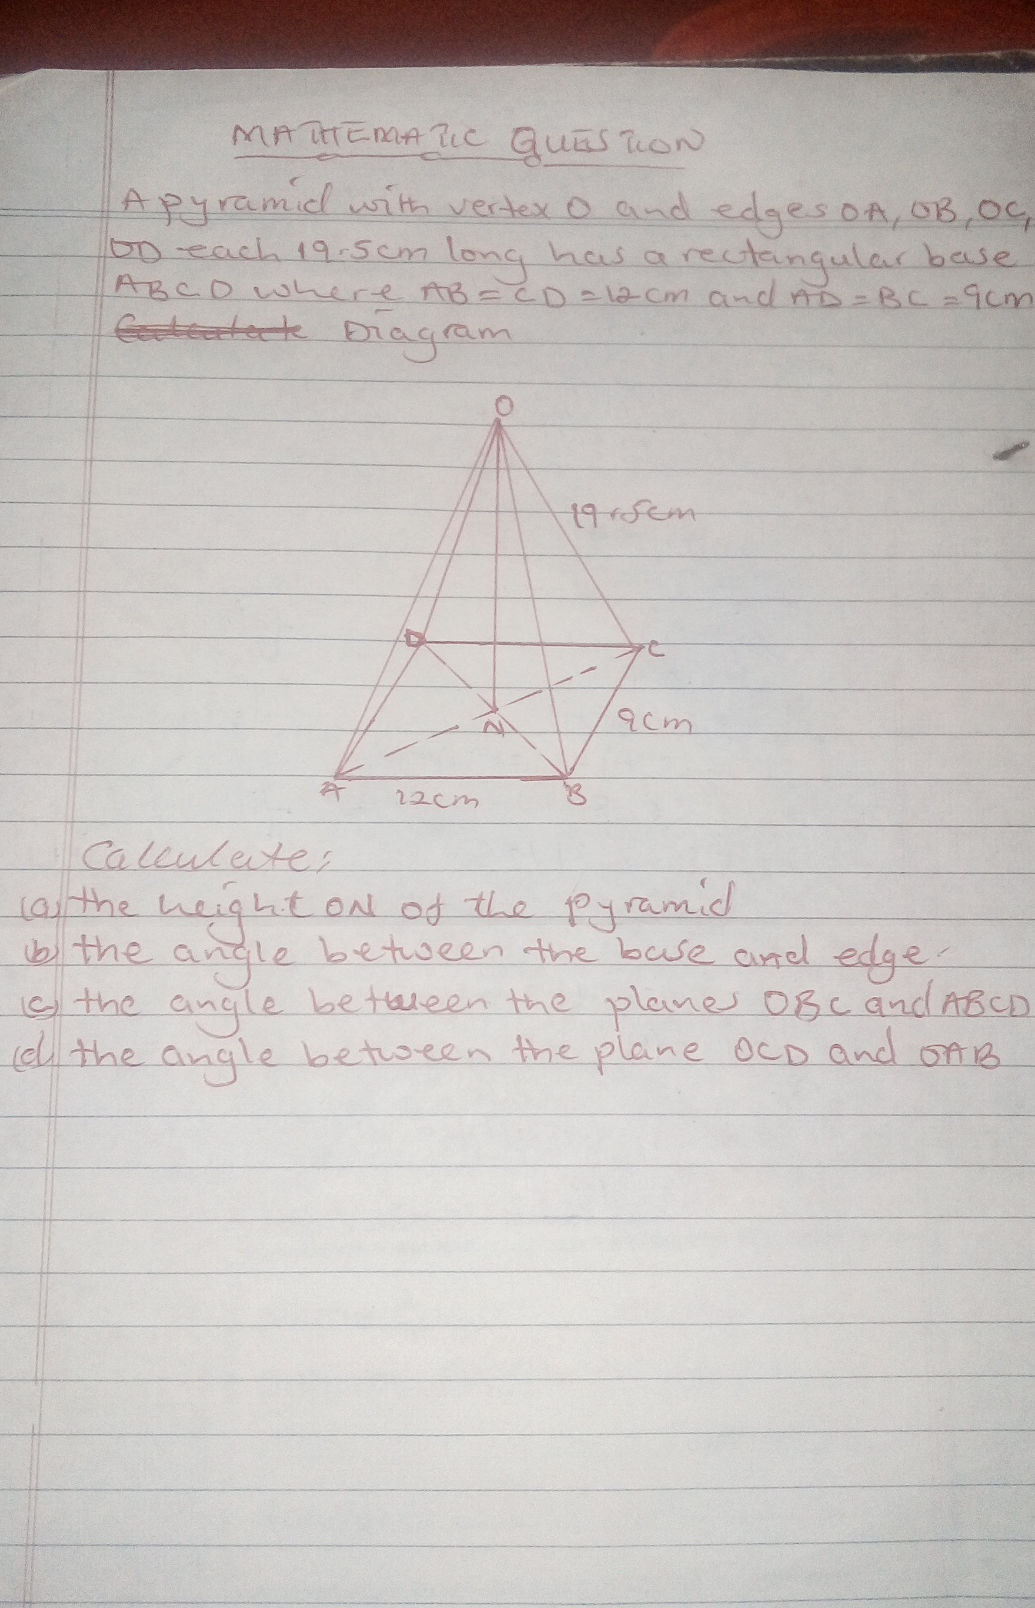 MATHEMATIC QUESTION
A pyramid with vertex O and edges OA, OB, OC,
OD each 19.5cm long has a rectangular base
ABCD where AB = CD = 12 cm and AD = BC = 9cm
Diagram
O
19.5cm
D
C
N
9cm
A
12cm
B
Calculate;
(a) the height ON of the pyramid
(b) the angle between the base and edge.
(c) the angle between the planes OBC and ABCD
(d) the angle between the plane OCD and OAB